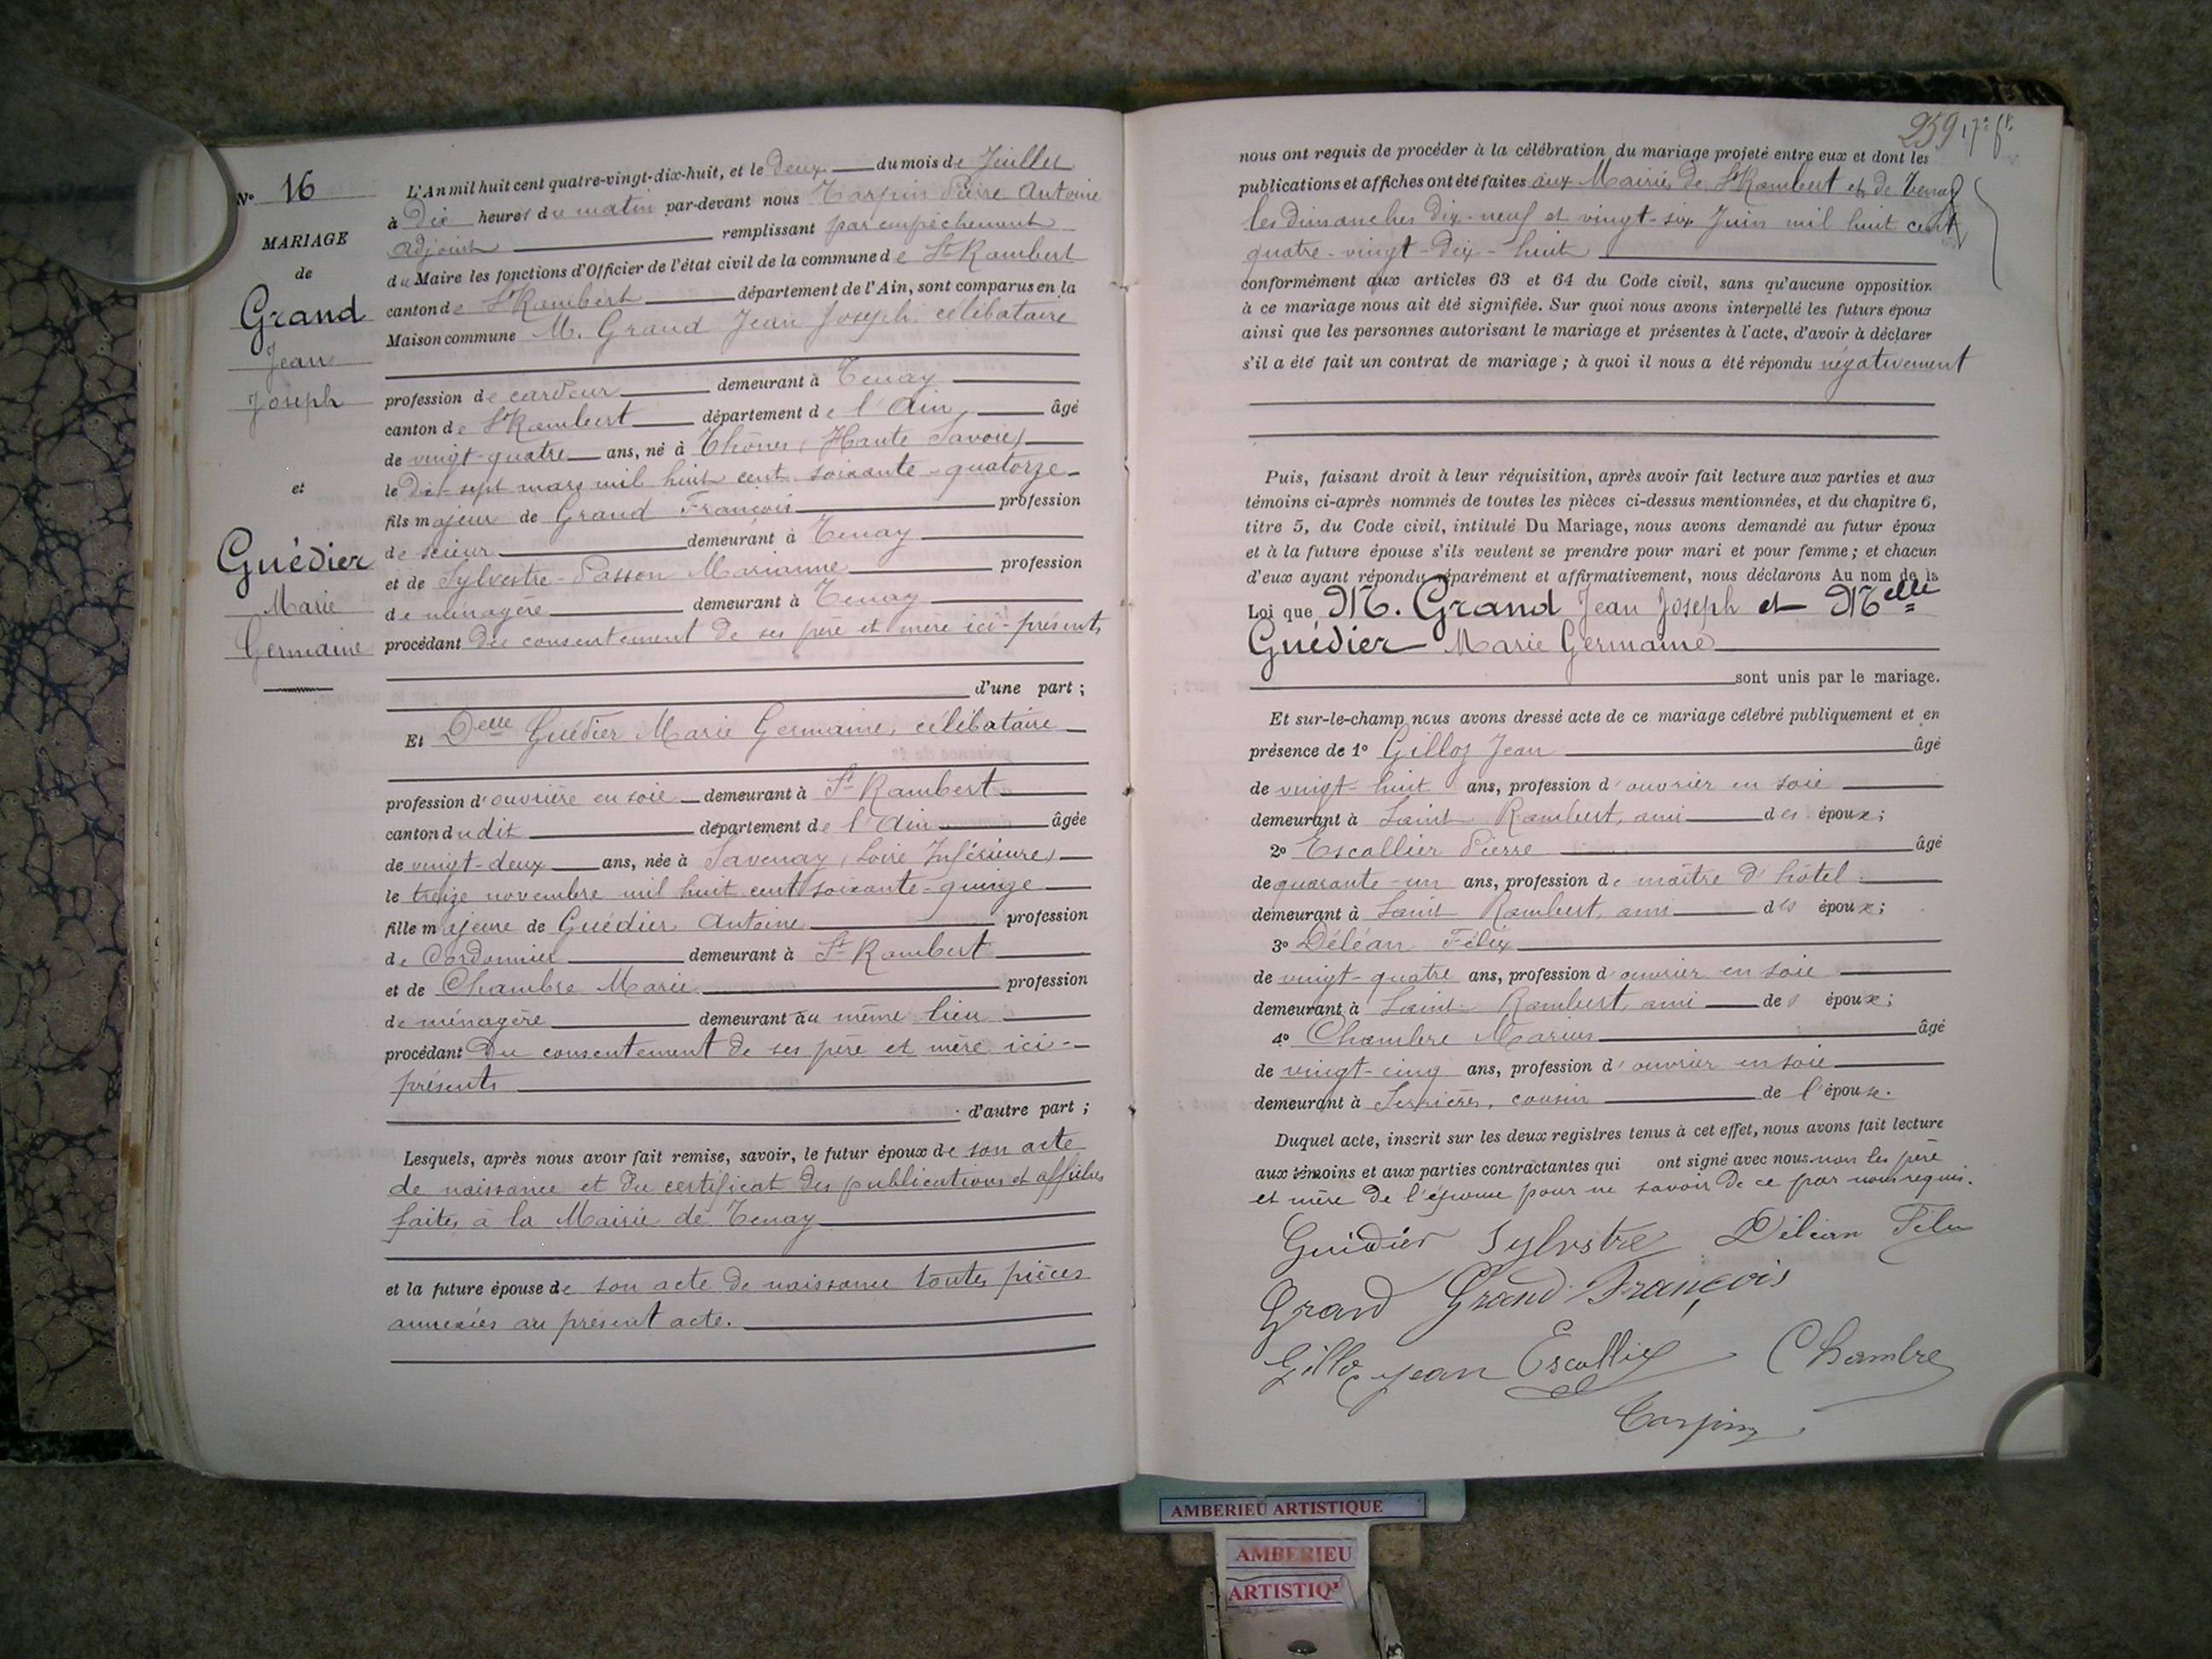 N° 16
MARIAGE
de
Grand
Jean
Joseph
et
Guédier
Marie
Germaine
L'An mil huit cent quatre-vingt-dix-huit, et le deux du mois de Juillet
à Dix heures du matin par-devant nous Tarpin Pierre Antoine
adjoint remplissant par empêchement
du Maire les fonctions d'Officier de l'état civil de la commune de St Rambert
canton de St Rambert département de l'Ain, sont comparus en la
Maison commune M. Grand Jean Joseph, célibataire
profession de cardeur demeurant à Tenay
canton de St Rambert département de l'Ain âgé
de vingt-quatre ans, né à Thônes (Haute Savoie)
le dix-sept mars mil huit cent soixante-quatorze
fils majeur de Grand François profession
de scieur demeurant à Tenay
et de Sylvestre-Passon Marianne profession
de ménagère demeurant à Tenay
procédant du consentement de ses père et mère ici-présents
d'une part ;
Et Delle Guédier Marie Germaine, célibataire
profession d'ouvrière en soie demeurant à St Rambert
canton dudit département de l'Ain âgée
de vingt-deux ans, née à Savenay (Loire Inférieure)
le treize novembre mil huit cent soixante-quinze
fille majeure de Guédier Antoine profession
de Cordonnier demeurant à St Rambert
et de Chambre Marie profession
de ménagère demeurant au même lieu
procédant Du consentement de ses père et mère ici-
présents
d'autre part ;
Lesquels, après nous avoir fait remise, savoir, le futur époux de son acte
de naissance et du certificat des publications et affiches
faites à la Mairie de Tenay
et la future épouse de son acte de naissance toutes pièces
annexées au présent acte.
259
nous ont requis de procéder à la célébration du mariage projeté entre eux et dont les
publications et affiches ont été faites aux Mairies de St Rambert et de Tenay
les dimanches dix-neuf et vingt-six Juin mil huit cent
quatre-vingt-dix-huit
conformément aux articles 63 et 64 du Code civil, sans qu'aucune opposition
à ce mariage nous ait été signifiée. Sur quoi nous avons interpellé les futurs époux
ainsi que les personnes autorisant le mariage et présentes à l'acte, d'avoir à déclarer
s'il a été fait un contrat de mariage ; à quoi il nous a été répondu négativement
Puis, faisant droit à leur réquisition, après avoir fait lecture aux parties et aux
témoins ci-après nommés de toutes les pièces ci-dessus mentionnées, et du chapitre 6,
titre 5, du Code civil, intitulé Du Mariage, nous avons demandé au futur époux
et à la future épouse s'ils veulent se prendre pour mari et pour femme ; et chacun
d'eux ayant répondu séparément et affirmativement, nous déclarons Au nom de la
Loi que M. Grand Jean Joseph et Melle
Guédier Marie Germaine
sont unis par le mariage.
Et sur-le-champ nous avons dressé acte de ce mariage célébré publiquement et en
présence de 1° Gilloz Jean âgé
de vingt-huit ans, profession d'ouvrier en soie
demeurant à Saint Rambert, ami des époux ;
2° Escallier Pierre âgé
de quarante-un ans, profession de maître d'hôtel
demeurant à Saint Rambert, ami des époux ;
3° Déléan Félix
de vingt-quatre ans, profession d'ouvrier en soie
demeurant à Saint Rambert, ami des époux ;
4° Chambre Marius âgé
de vingt-cinq ans, profession d'ouvrier en soie
demeurant à Serrières, cousin de l'épouse.
Duquel acte, inscrit sur les deux registres tenus à cet effet, nous avons fait lecture
aux témoins et aux parties contractantes qui ont signé avec nous non les père
et mère de l'épouse pour ne savoir de ce par nous requis.
Guédier Sylvstre Déléan Félix
Grand Grand François
Gilloz jean Escallier Chambre
Tarpin
AMBERIEU ARTISTIQUE
AMBERIEU
ARTISTIQ